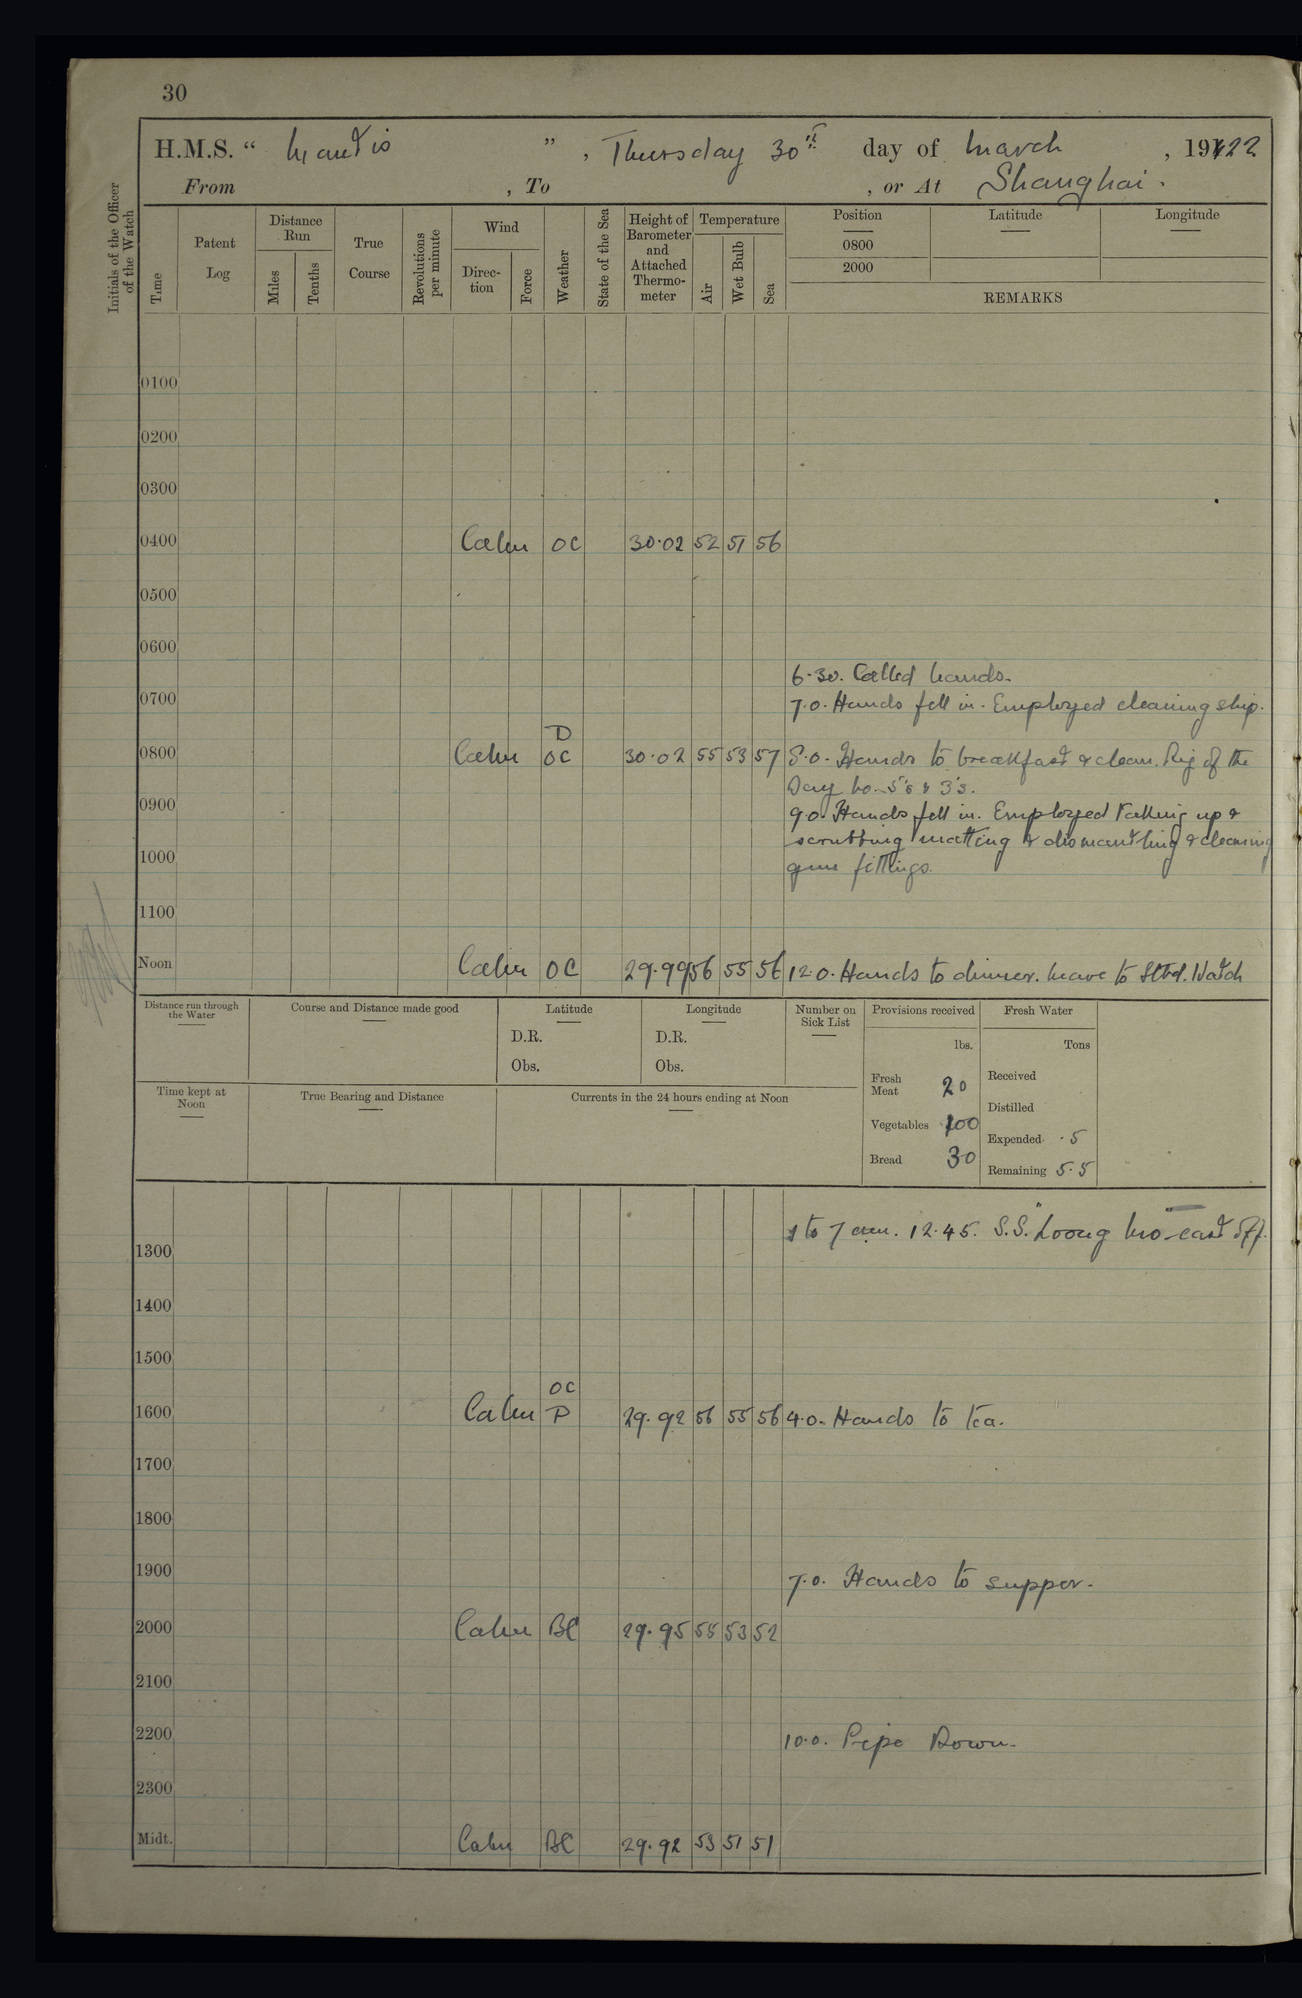 30
H.M.S. “ Mantis ”, Thursday 30th day of March, 1922
From , To , or At Shanghai.
Initials of the Officer of the Watch
Time
Patent Log
Distance Run
Miles
Tenths
True Course
Revolutions per minute
Wind
Direc-tion
Force
Weather
State of the Sea
Height of Barometer and Attached Thermo-meter
Temperature
Air
Wet Bulb
Sea
Position
Latitude
Longitude
0800
2000
REMARKS
0100
0200
0300
0400 Calm OC 30.02 52 51 56
0500
0600
6.30. Called hands.
0700 7.0. Hands fell in. Employed cleaning ship.
D
0800 Calm OC 30.02 55 53 57 8.0. Hands to breakfast & clean. Rig of the
Day No. 5's & 3's.
0900 9.0. Hands fell in. Employed taking up &
scrubbing matting & dismantling & cleaning
1000
gun fittings.
1100
Noon Calm OC 29.99 56 55 56 12.0. Hands to dinner. Leave to Stbd. Watch
Distance run through the Water
Course and Distance made good
Latitude
D.R.
Obs.
Longitude
D.R.
Obs.
Number on Sick List
Provisions received
lbs.
Fresh Meat 20
Vegetables 100
Bread 30
Fresh Water
Tons
Received
Distilled
Expended .5
Remaining 5.5
Time kept at Noon
True Bearing and Distance
Currents in the 24 hours ending at Noon
1 to 7 am. 12.45. S.S. "Loong cast off.
1300
1400
1500
OC
1600 Calm P 29.92 56 55 56 4.0. Hands to tea.
1700
1800
1900 7.0. Hands to supper.
2000 Calm BC 29.95 55 53 52
2100
2200 10.0. Pipe Down.
2300
Midt. Calm BC 29.92 53 51 51